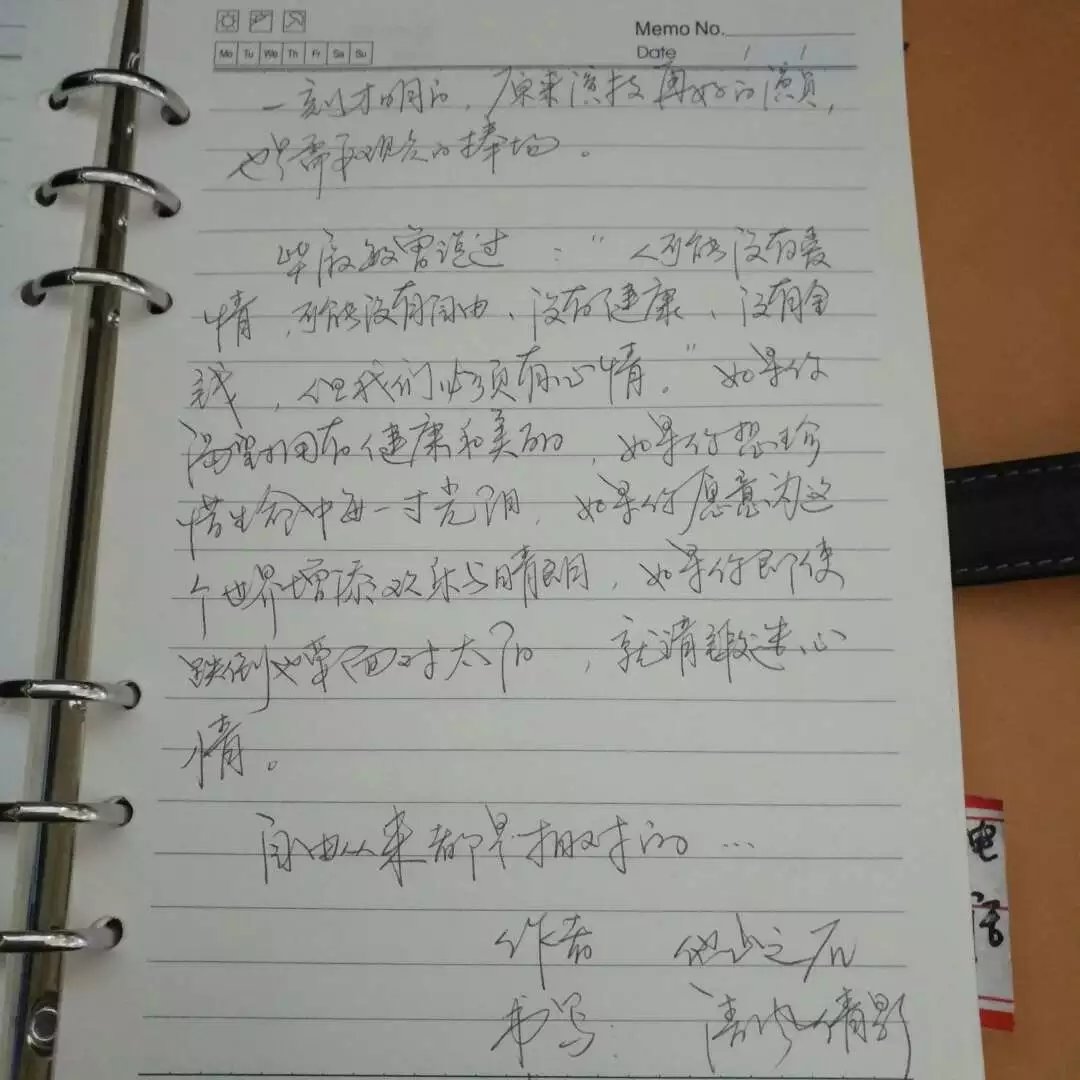 Memo No.
Mo Tu We Th Fr Sa Su
Date / /
一刻才明白，原来演技再好的演员，
也是需要观众的捧场。
毕淑敏曾说过："人可能没有爱
情，可能没有自由、没有健康、没有金
钱，但我们必须有心情。"如果你
渴望拥有健康和美丽，如果你想珍
惜生命中每一寸光阴，如果你愿意为这
个世界增添欢乐与晴朗，如果你即使
跌倒也要面对太阳，就请锻造心
情。
自由从来都是相对的…
作者 他山之石
书写： 清风倩影
电
话